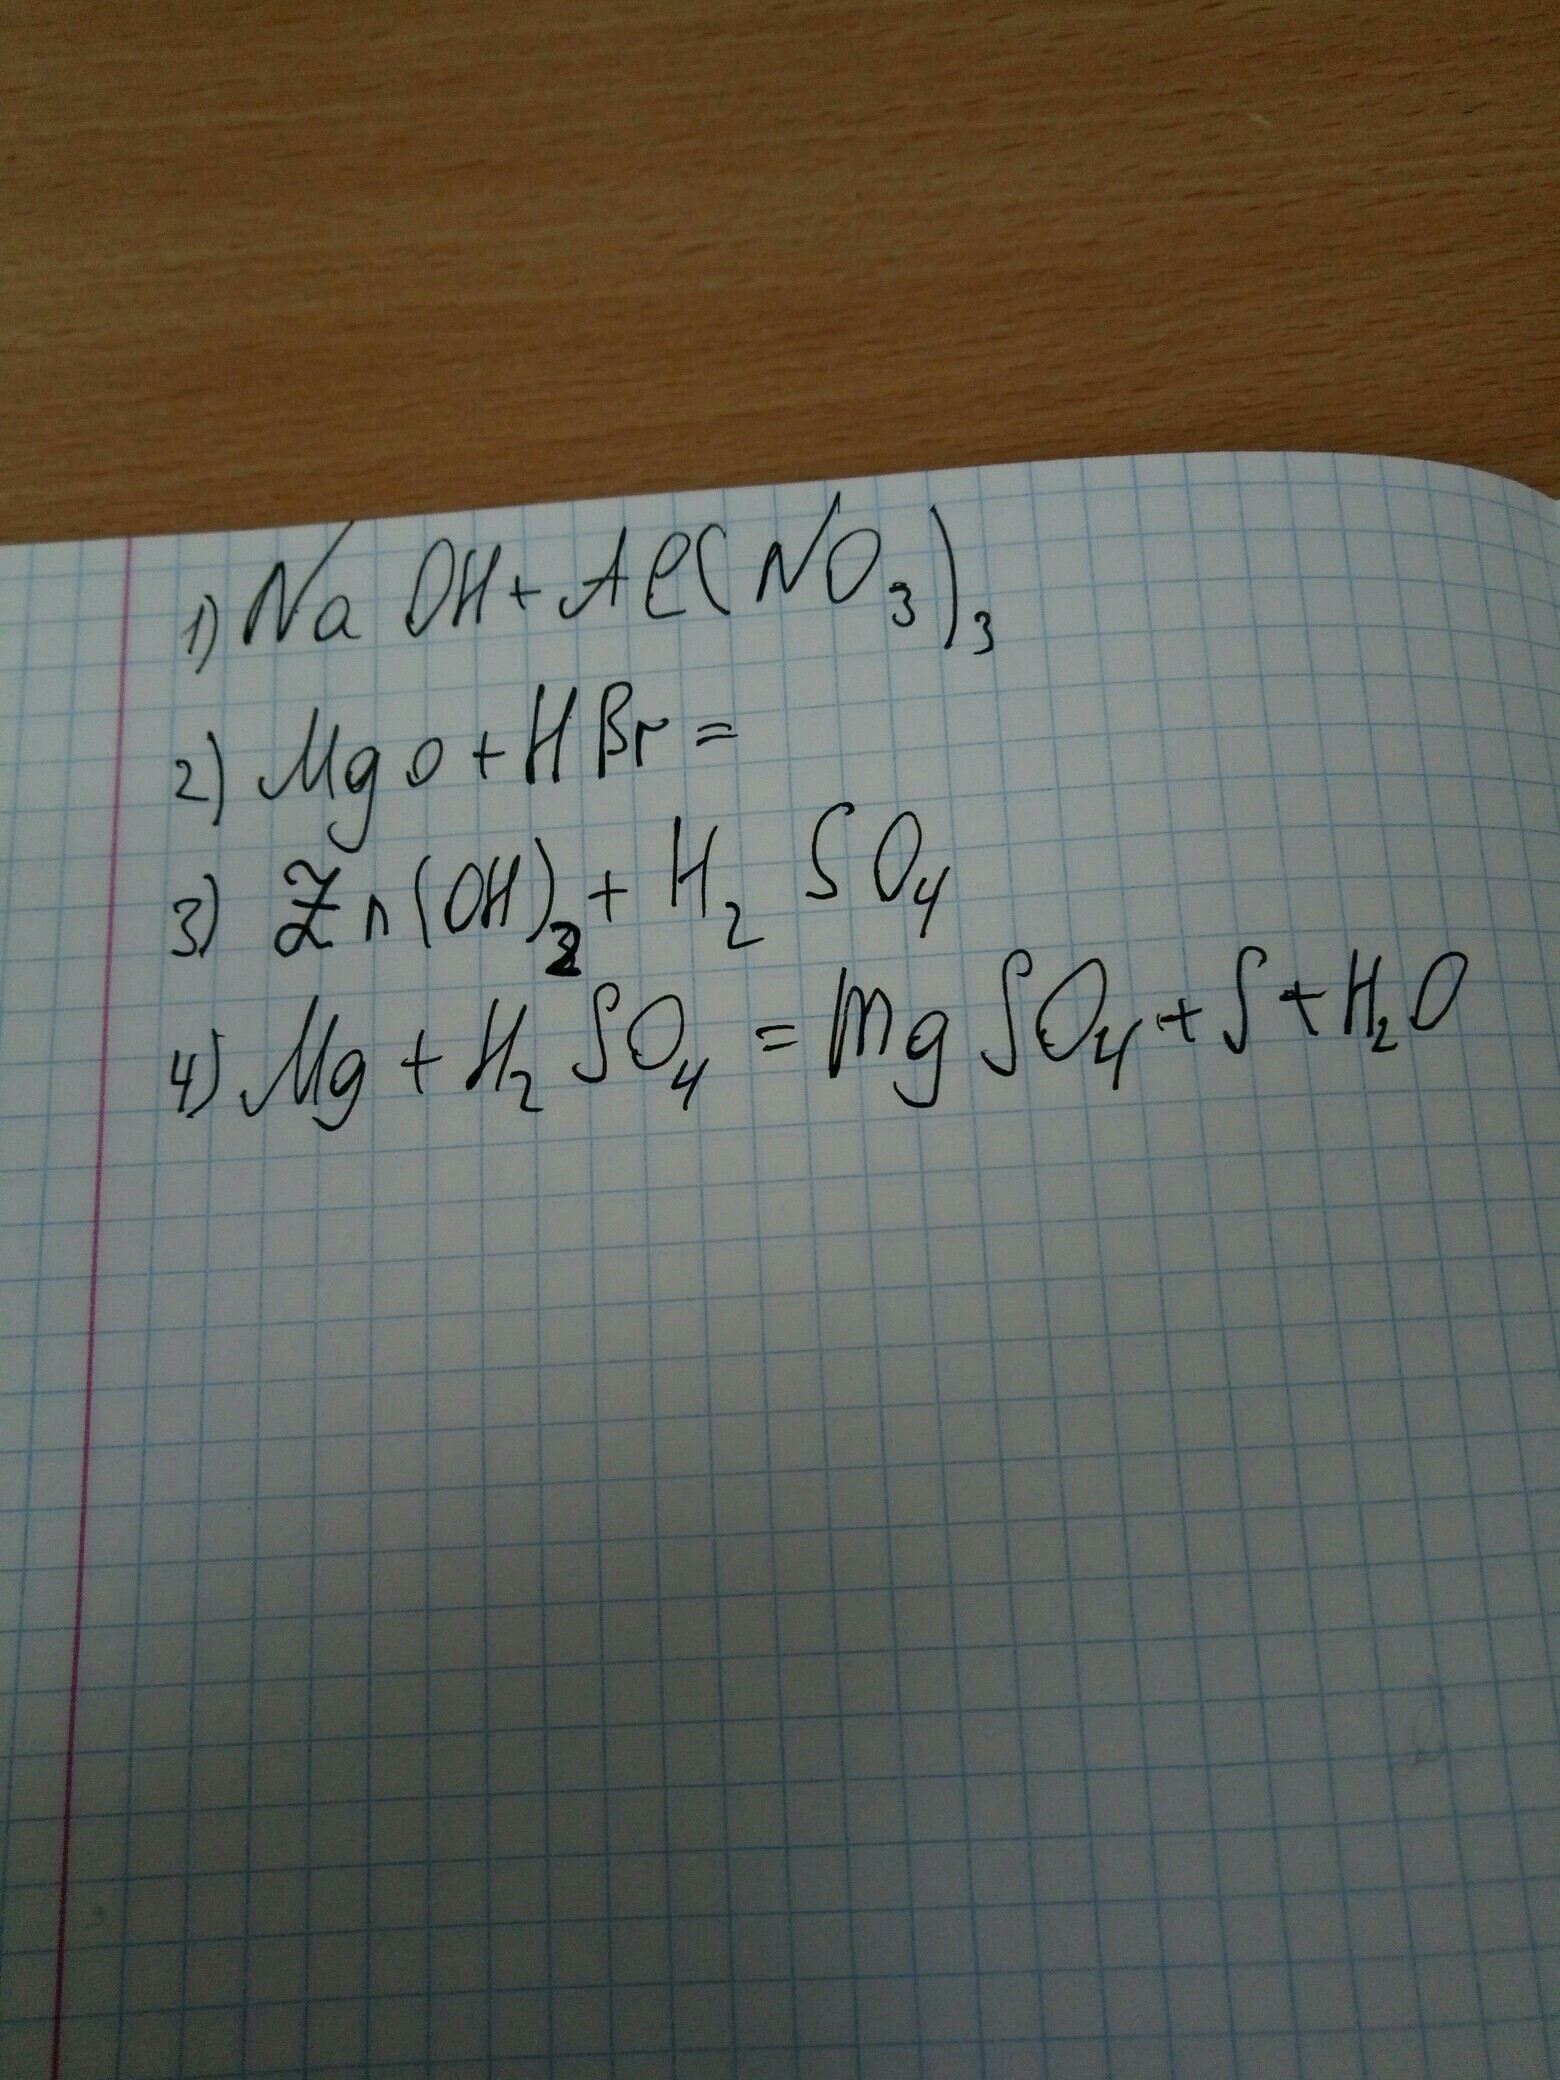 1) NaOH + Al(NO₃)₃
2) MgO + HBr =
3) Zn(OH)₂ + H₂SO₄
4) Mg + H₂SO₄ = MgSO₄ + S + H₂O